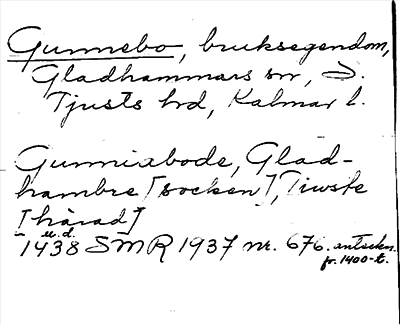 Gunnebo, bruksegendom,
Gladhammars sn, S.
Tjusts hd, Kalmar l.
Gunnixabode, Glad-
hambre [socken], Tiwste
[härad]
u.d.
1438 SMR 1937 nr. 676. anteckn.
fr. 1400-t.